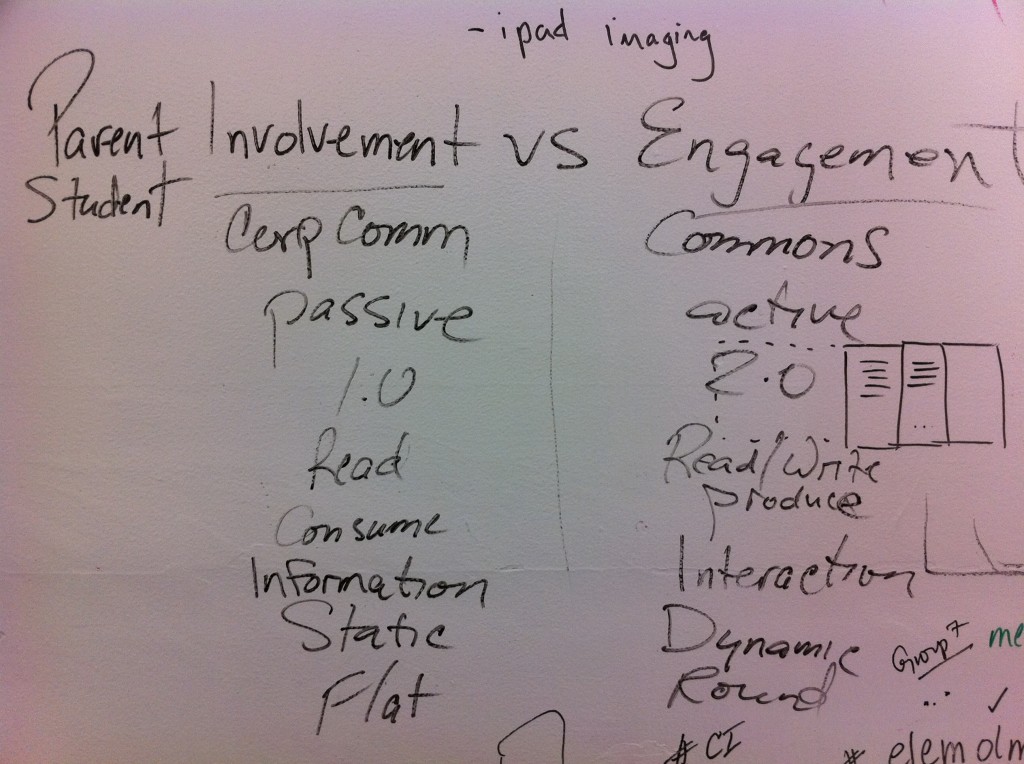 - ipad imaging
Parent Involvement vs Engagement
Student
Corp Comm
Commons
passive
active
1.0
2.0
Read
Read/Write
produce
Consume
Interaction
Information
Static
Dynamic
Flat
Round
Group 7
me
# CI
* elem olm